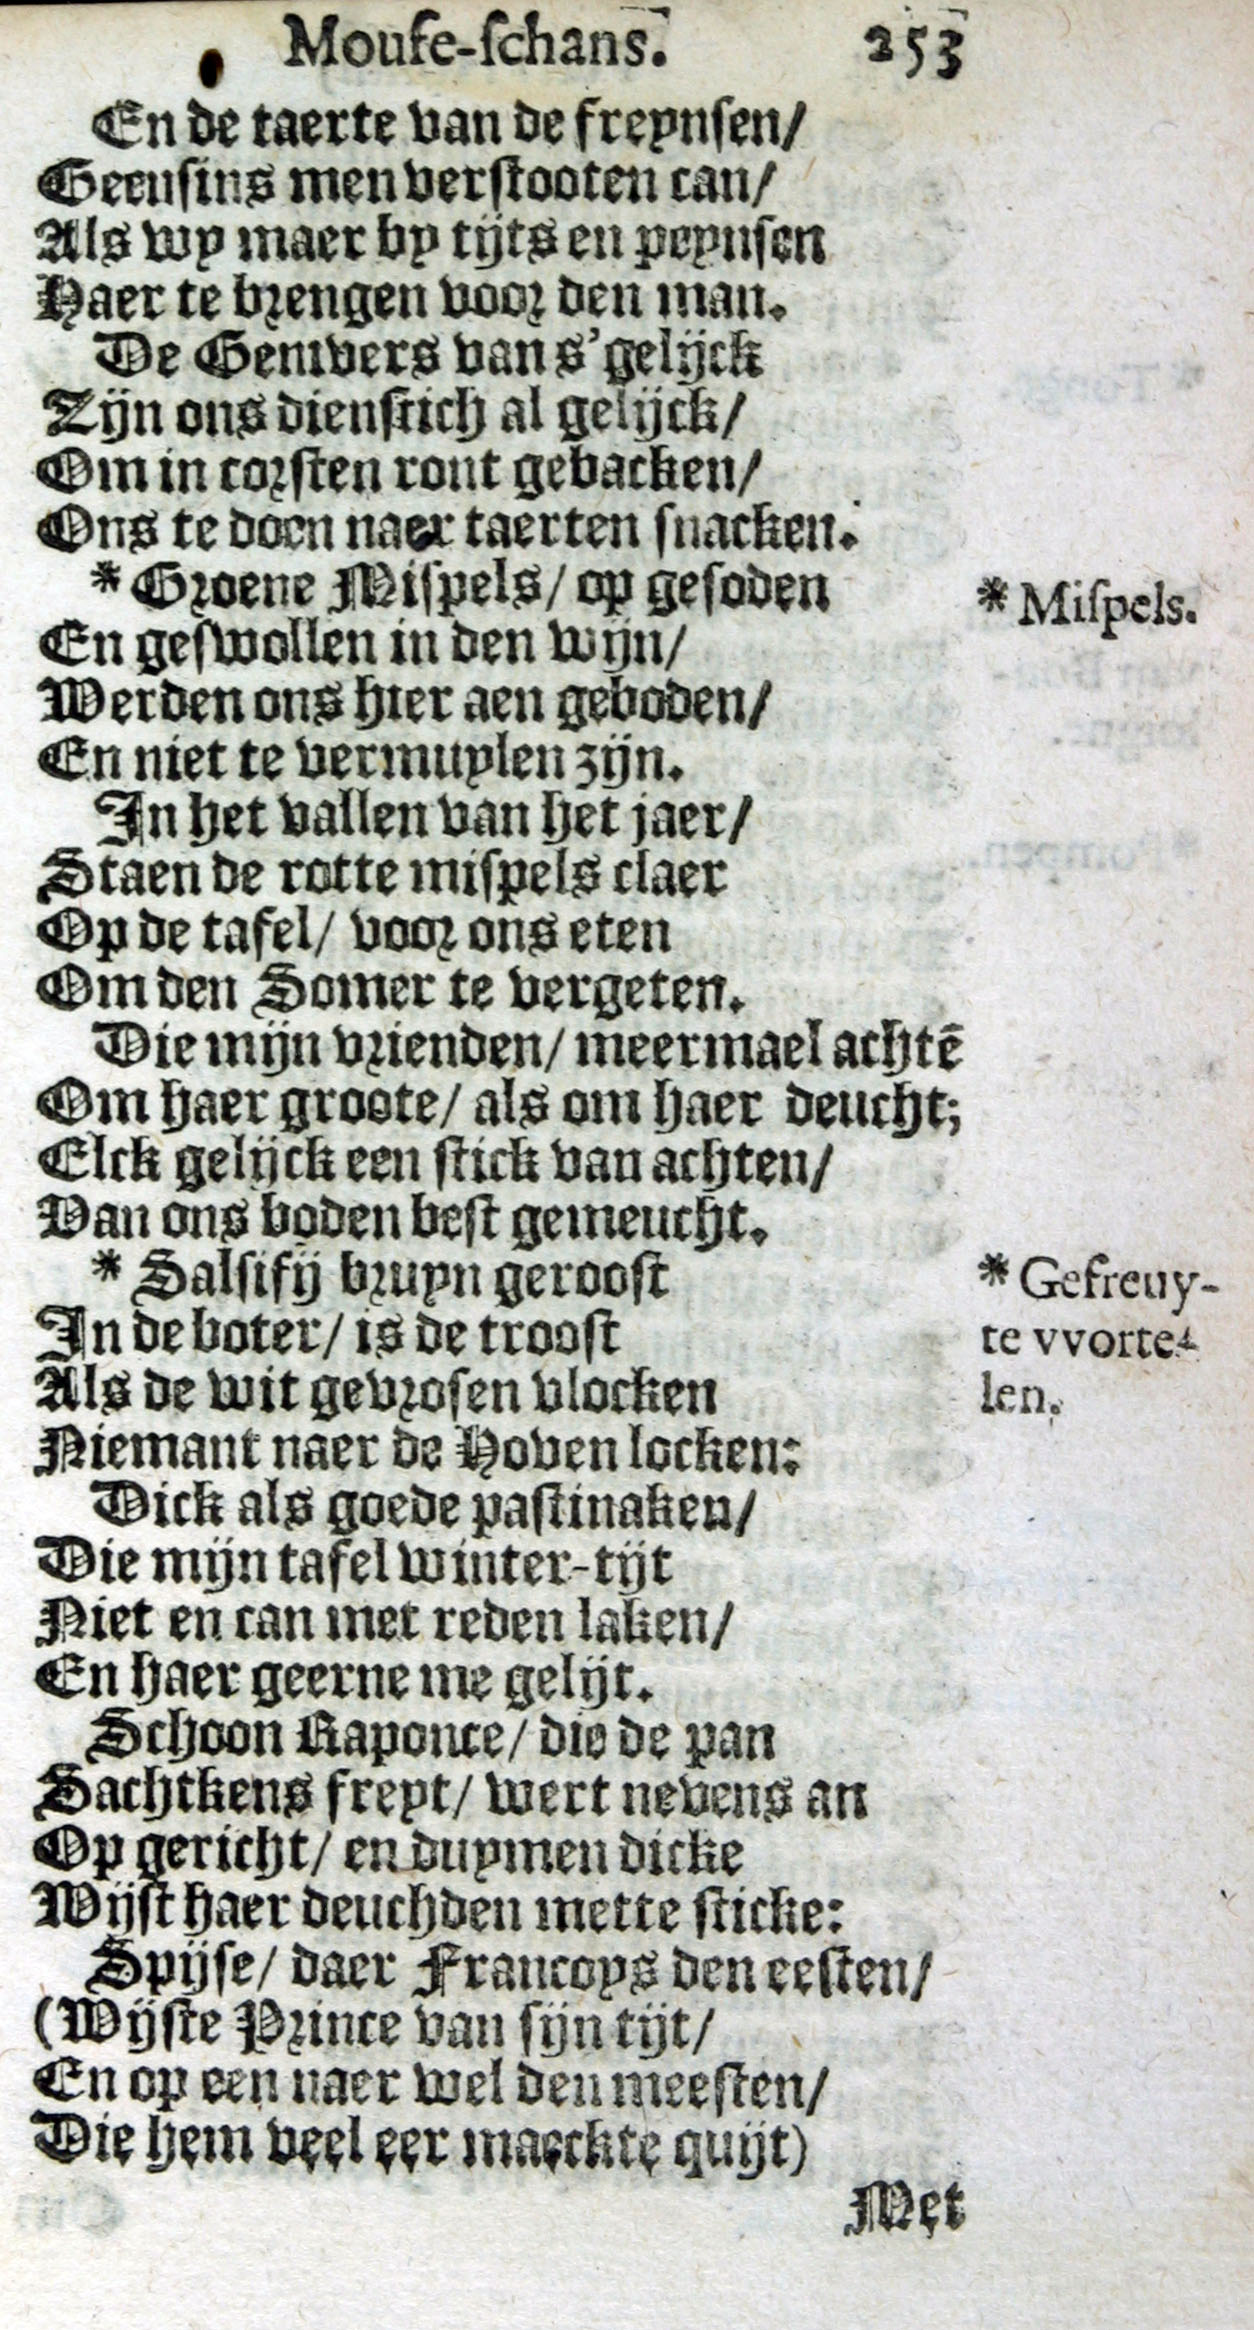 Mouſe-ſchans. 253
En de taerte van de freynſen/
Geenſins men verſtooten can/
Als wy maer by tijts en peynſen
Haer te brengen voor den man.
De Genivers van s'gelijck
Zijn ons dienſtich al gelijck/
Om in corſten ront gebacken/
Ons te doen naer taerten ſnacken.
* Groene Miſpels/ op geſoden
* Miſpels.
En geſwollen in den wijn/
Werden ons hier aen geboden/
En niet te vermuylen zijn.
In het vallen van het jaer/
Staen de rotte miſpels claer
Op de tafel/ voor ons eten
Om den Somer te vergeten.
Die mijn vrienden/ meermael achtē
Om haer groote/ als om haer deucht;
Elck gelijck een ſtick van achten/
Van ons boden beſt gemeucht.
* Salſifij bruyn gerooſt
* Gefreuy-
In de boter/ is de trooſt
te vvorte-
Als de wit gevroſen vlocken
len.
Niemant naer de Hoven locken:
Dick als goede paſtinaken/
Die mijn tafel winter-tijt
Niet en can met reden laken/
En haer geerne me gelijt.
Schoon Raponce/ die de pan
Sachtkens freyt/ wert nevens an
Op gericht/ en duymen dicke
Wijſt haer deuchden mette ſticke:
Spijſe/ daer Francoys den eeſten/
(Wijſte Prince van ſijn tijt/
En op een naer wel den meeſten/
Die hem veel eer maeckte quijt)
Met